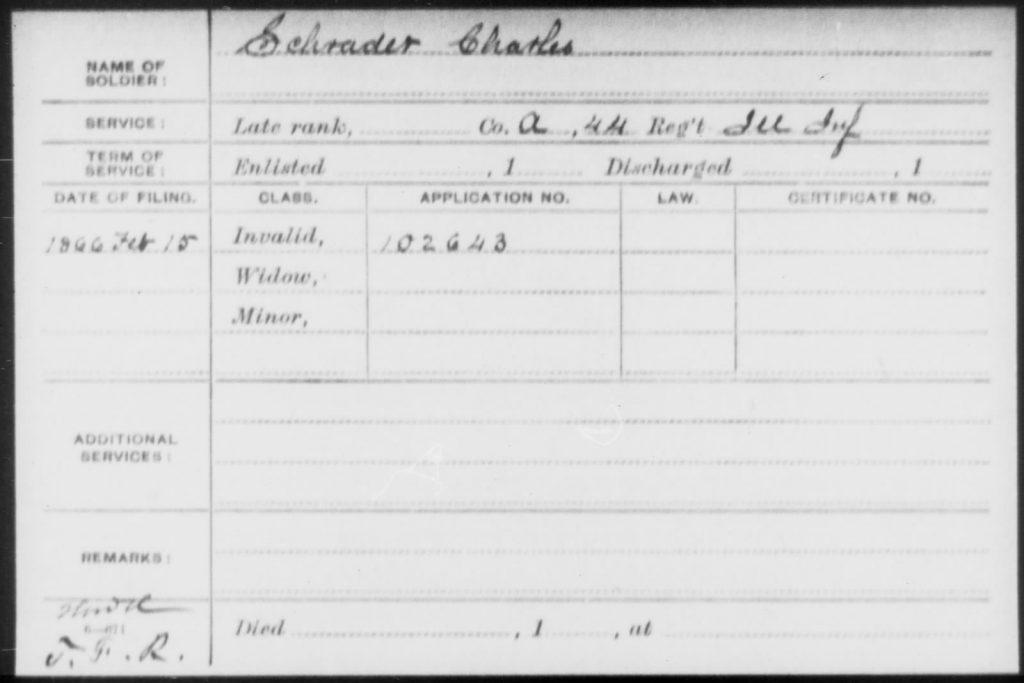 Schrader Charles
NAME OF
SOLDIER:
SERVICE: Late rank, Co. A, 44 Reg't Ill Inf
TERM OF
SERVICE: Enlisted , 1 Discharged , 1
DATE OF FILING. CLASS. APPLICATION NO. LAW. CERTIFICATE NO.
1866 Feb 15 Invalid, 102643
Widow,
Minor,
ADDITIONAL
SERVICES:
REMARKS:
Died , 1 , at
J. F. R.